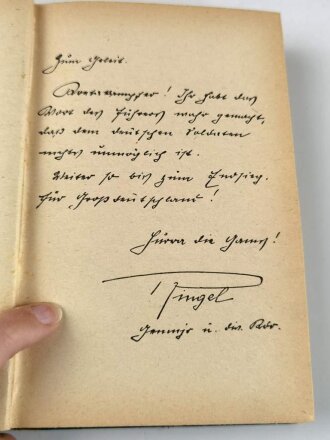 Zum Geleit.
Kretakämpfer! Ihr habt das
Wort des Führers wahr gemacht,
daß dem deutschen Soldaten
nichts unmöglich ist.
Weiter so bis zum Endsieg.
für Großdeutschland!
Hurra die Gams!
Ringel
u. Div. Kdr.